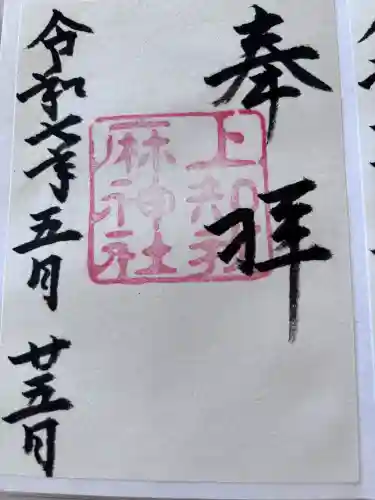 奉拝
上知我
麻神社
令和七年五月廿五日